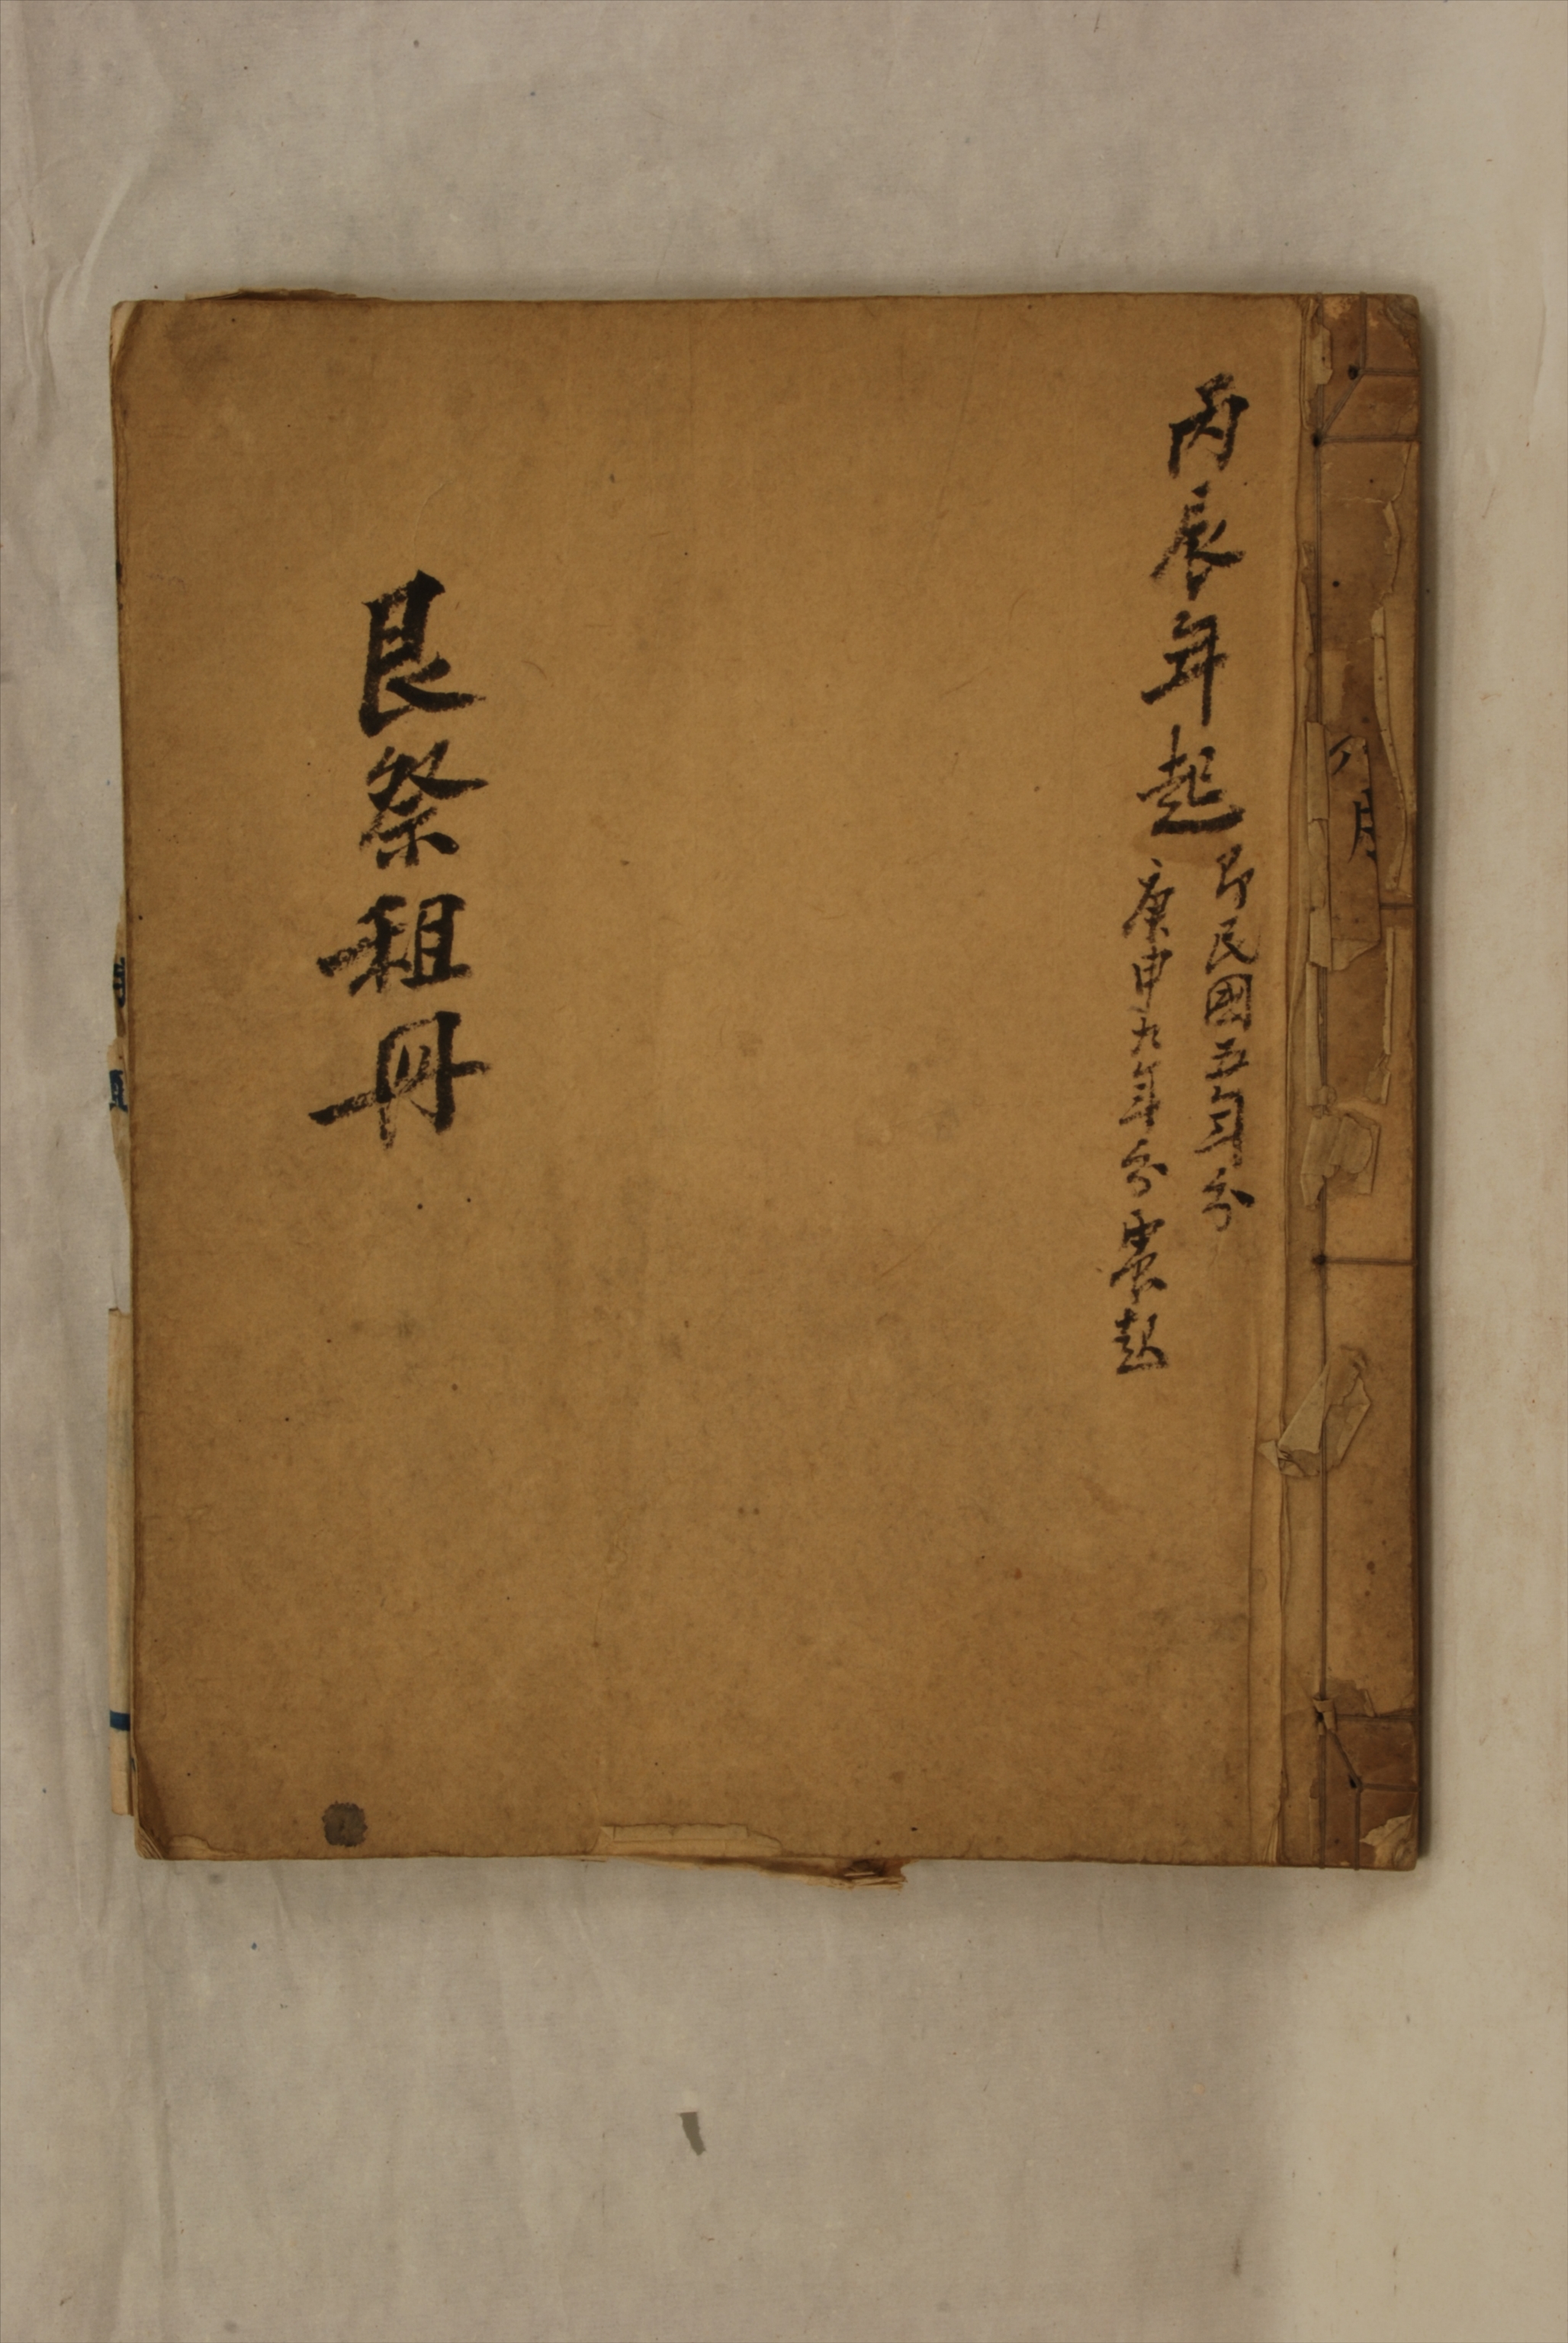 月
丙辰年起
即民國五年分
庚申九年分震起
艮祭租冊